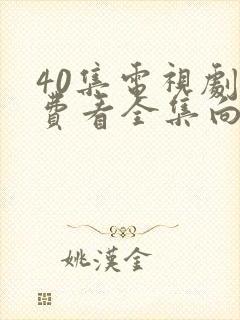 40集電視劇
費看全集向
姚漢金